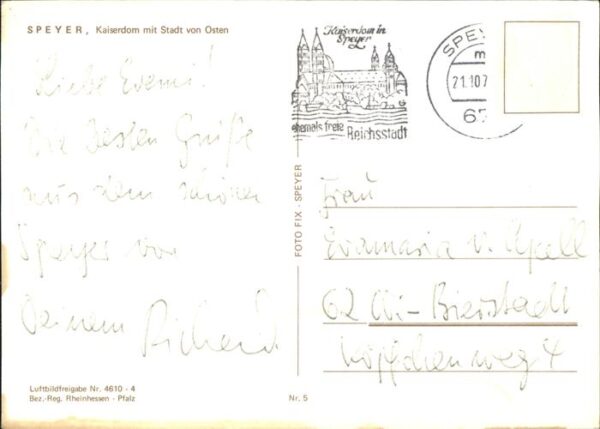 SPEYER, Kaiserdom mit Stadt von Osten
Liebe Evemi!
Die besten Grüße
aus dem schönen
Speyer von
Deinem Richard.
Luftbildfreigabe Nr. 4610 - 4
Bez.-Reg. Rheinhessen - Pfalz
FOTO FIX · SPEYER
Nr. 5
Kaiserdom in
Speyer
ehemals freie Reichsstadt
SPEY
m
21.10.7
67
Frau
Evamaria v. Apell
62 Wi-Bierstadt
Köpfchenweg 4